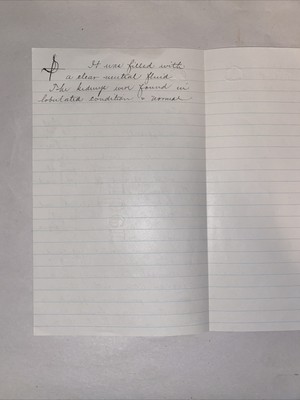 It was filled with
a clear neutral fluid
The kidneys wer found in
lobulated condition & normal